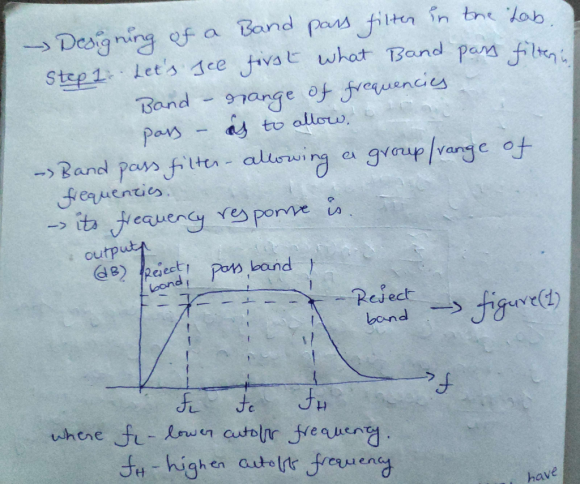 → Designing of a Band pass filter in the Lab.
Step 1. Let's see first what Band pass filter is.
Band - range of frequencies
pass - is to allow.
→ Band pass filter - allowing a group/range of
frequencies.
→ its frequency response is.
output
(dB)
Reject
band
pass band
Reject
band
→ figure(1)
f
fL
fc
fH
where fL - lower cutoff frequency.
fH - higher cutoff frequency
have